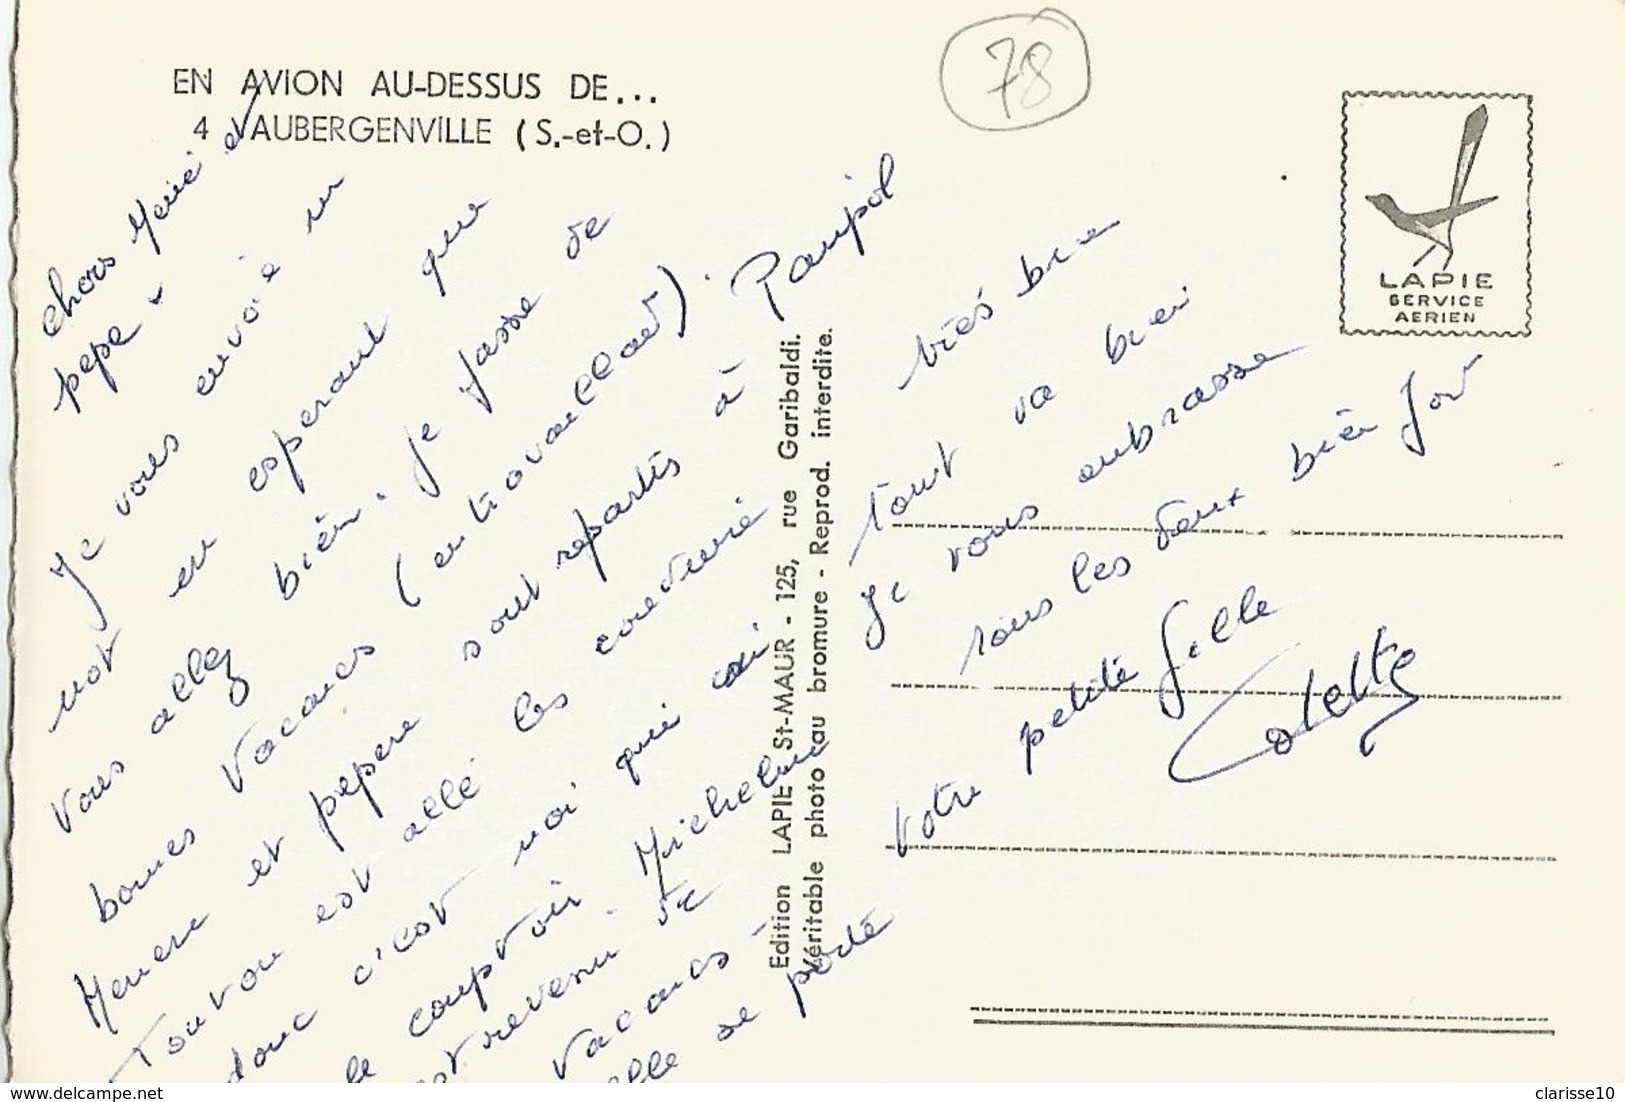 78
EN AVION AU-DESSUS DE...
4 AUBERGENVILLE (S.-et-O.)
LAPIE
SERVICE
AERIEN
Edition LAPIE St-MAUR - 125, rue Garibaldi.
Véritable photo au bromure - Reprod. interdite.
chers Mémé et
pépé
Je vous envoie un
mot en esperant que
vous allez bien. Je passe de
bonnes vacances (en travaillant).
Memere et pepere sont repartis à Paimpol
Tonton est allé les conduire
donc c'est moi qui suis
le comptoir Micheline
est revenu de
vacances
elle se porte
très bien
tout va bien
Je vous embrasse
tous les deux bien fort
Votre petite fille
Colette
clarisse10